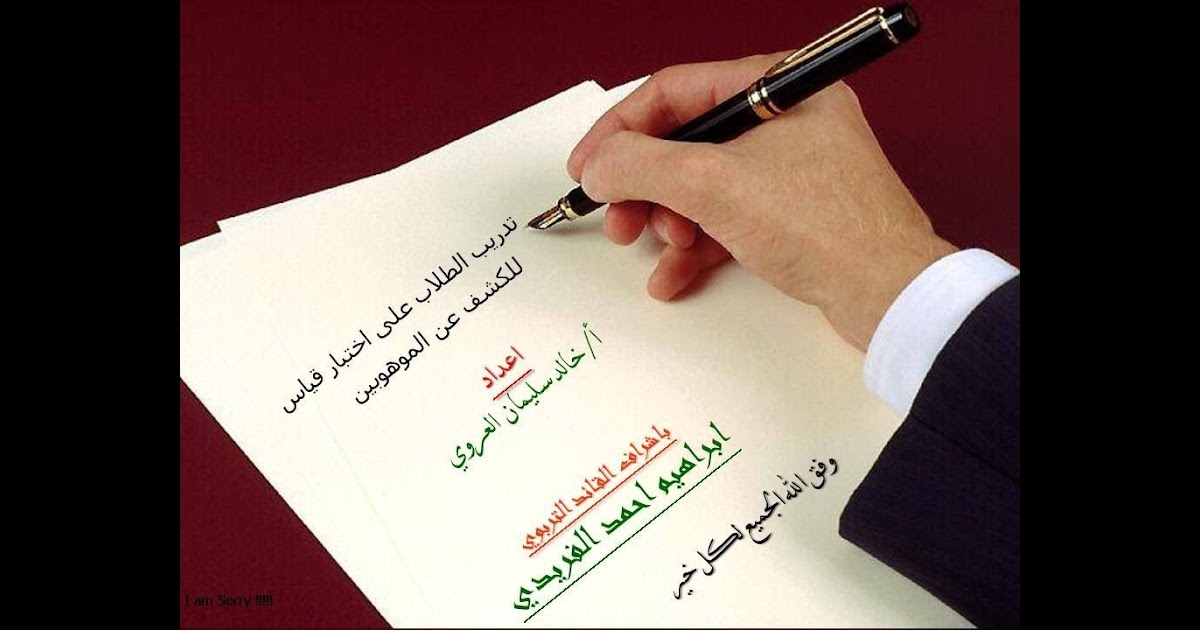 تدريب الطلاب على اختبار قياس
للكشف عن الموهوبين
اعداد
أ/ خالد سليمان العروي
باشراف القائد التربوي
ابراهيم احمد الفريدي
وفق الله الجميع لكل خير
I am Sorry !!!!!